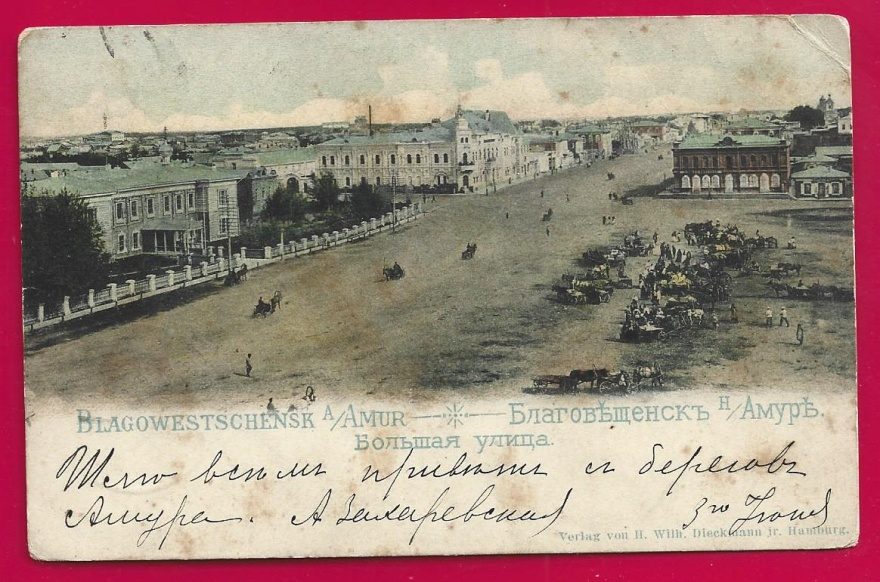 BLAGOWESTSCHENSK A/AMUR — Благовѣщенскъ Н/Амурѣ.
Большая улица.
Шлю всѣмъ привѣтъ съ береговъ
Амура. А Захаревская 3го Іюня
Verlag von H. Wilh. Dieckmann jr. Hamburg.